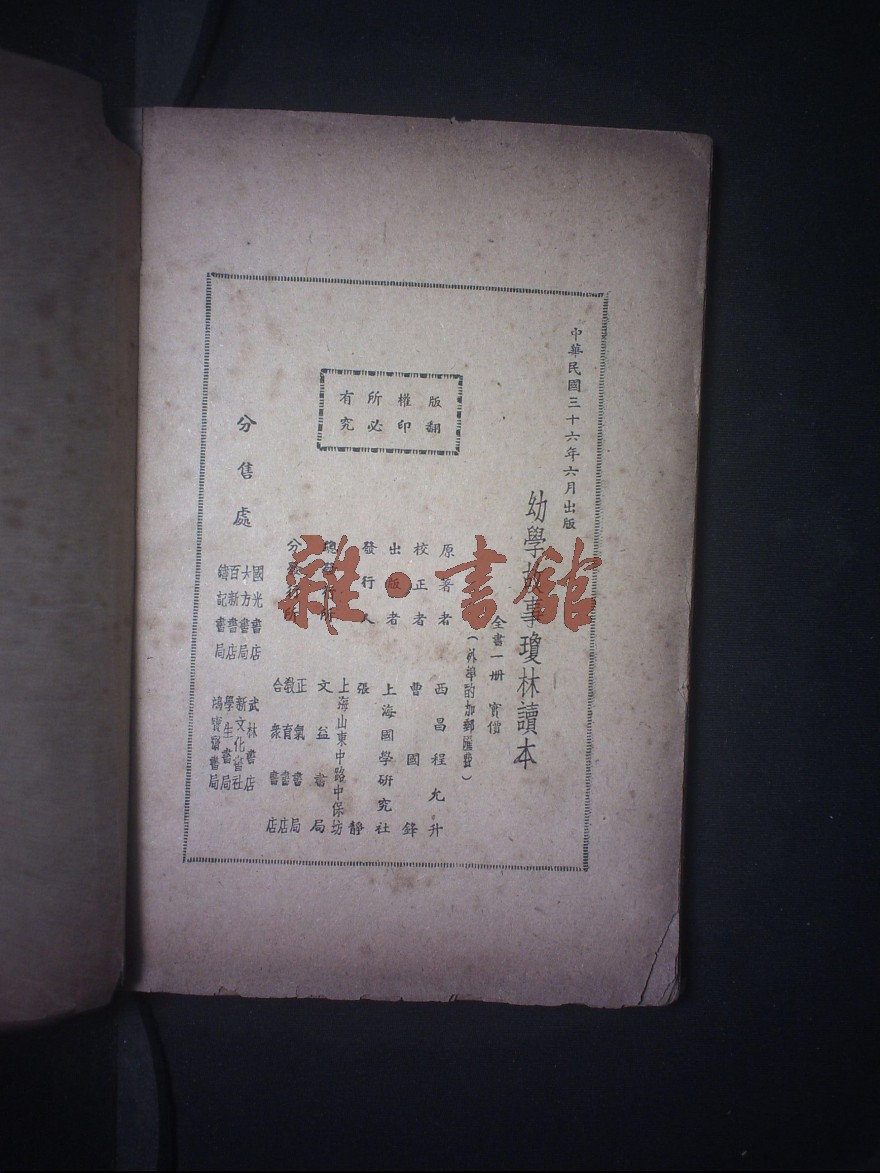 中華民國三十六年六月出版
幼學故事瓊林讀本
全書一册 實價
(外埠酌加郵匯費)
原著者 西昌程允升
校正者 曹國鋒
出版者 上海國學研究社
發行人 張靜
上海山東中路中保坊
總發行所 文益書局
分發行所 正氣書局
教育書店
合衆書店
版權所有
翻印必究
分售處
國光書店 武林書店
大方書局 新文化書社
百新書店 學生書局
鑄記書局 鴻寶齋書局
雜·書館